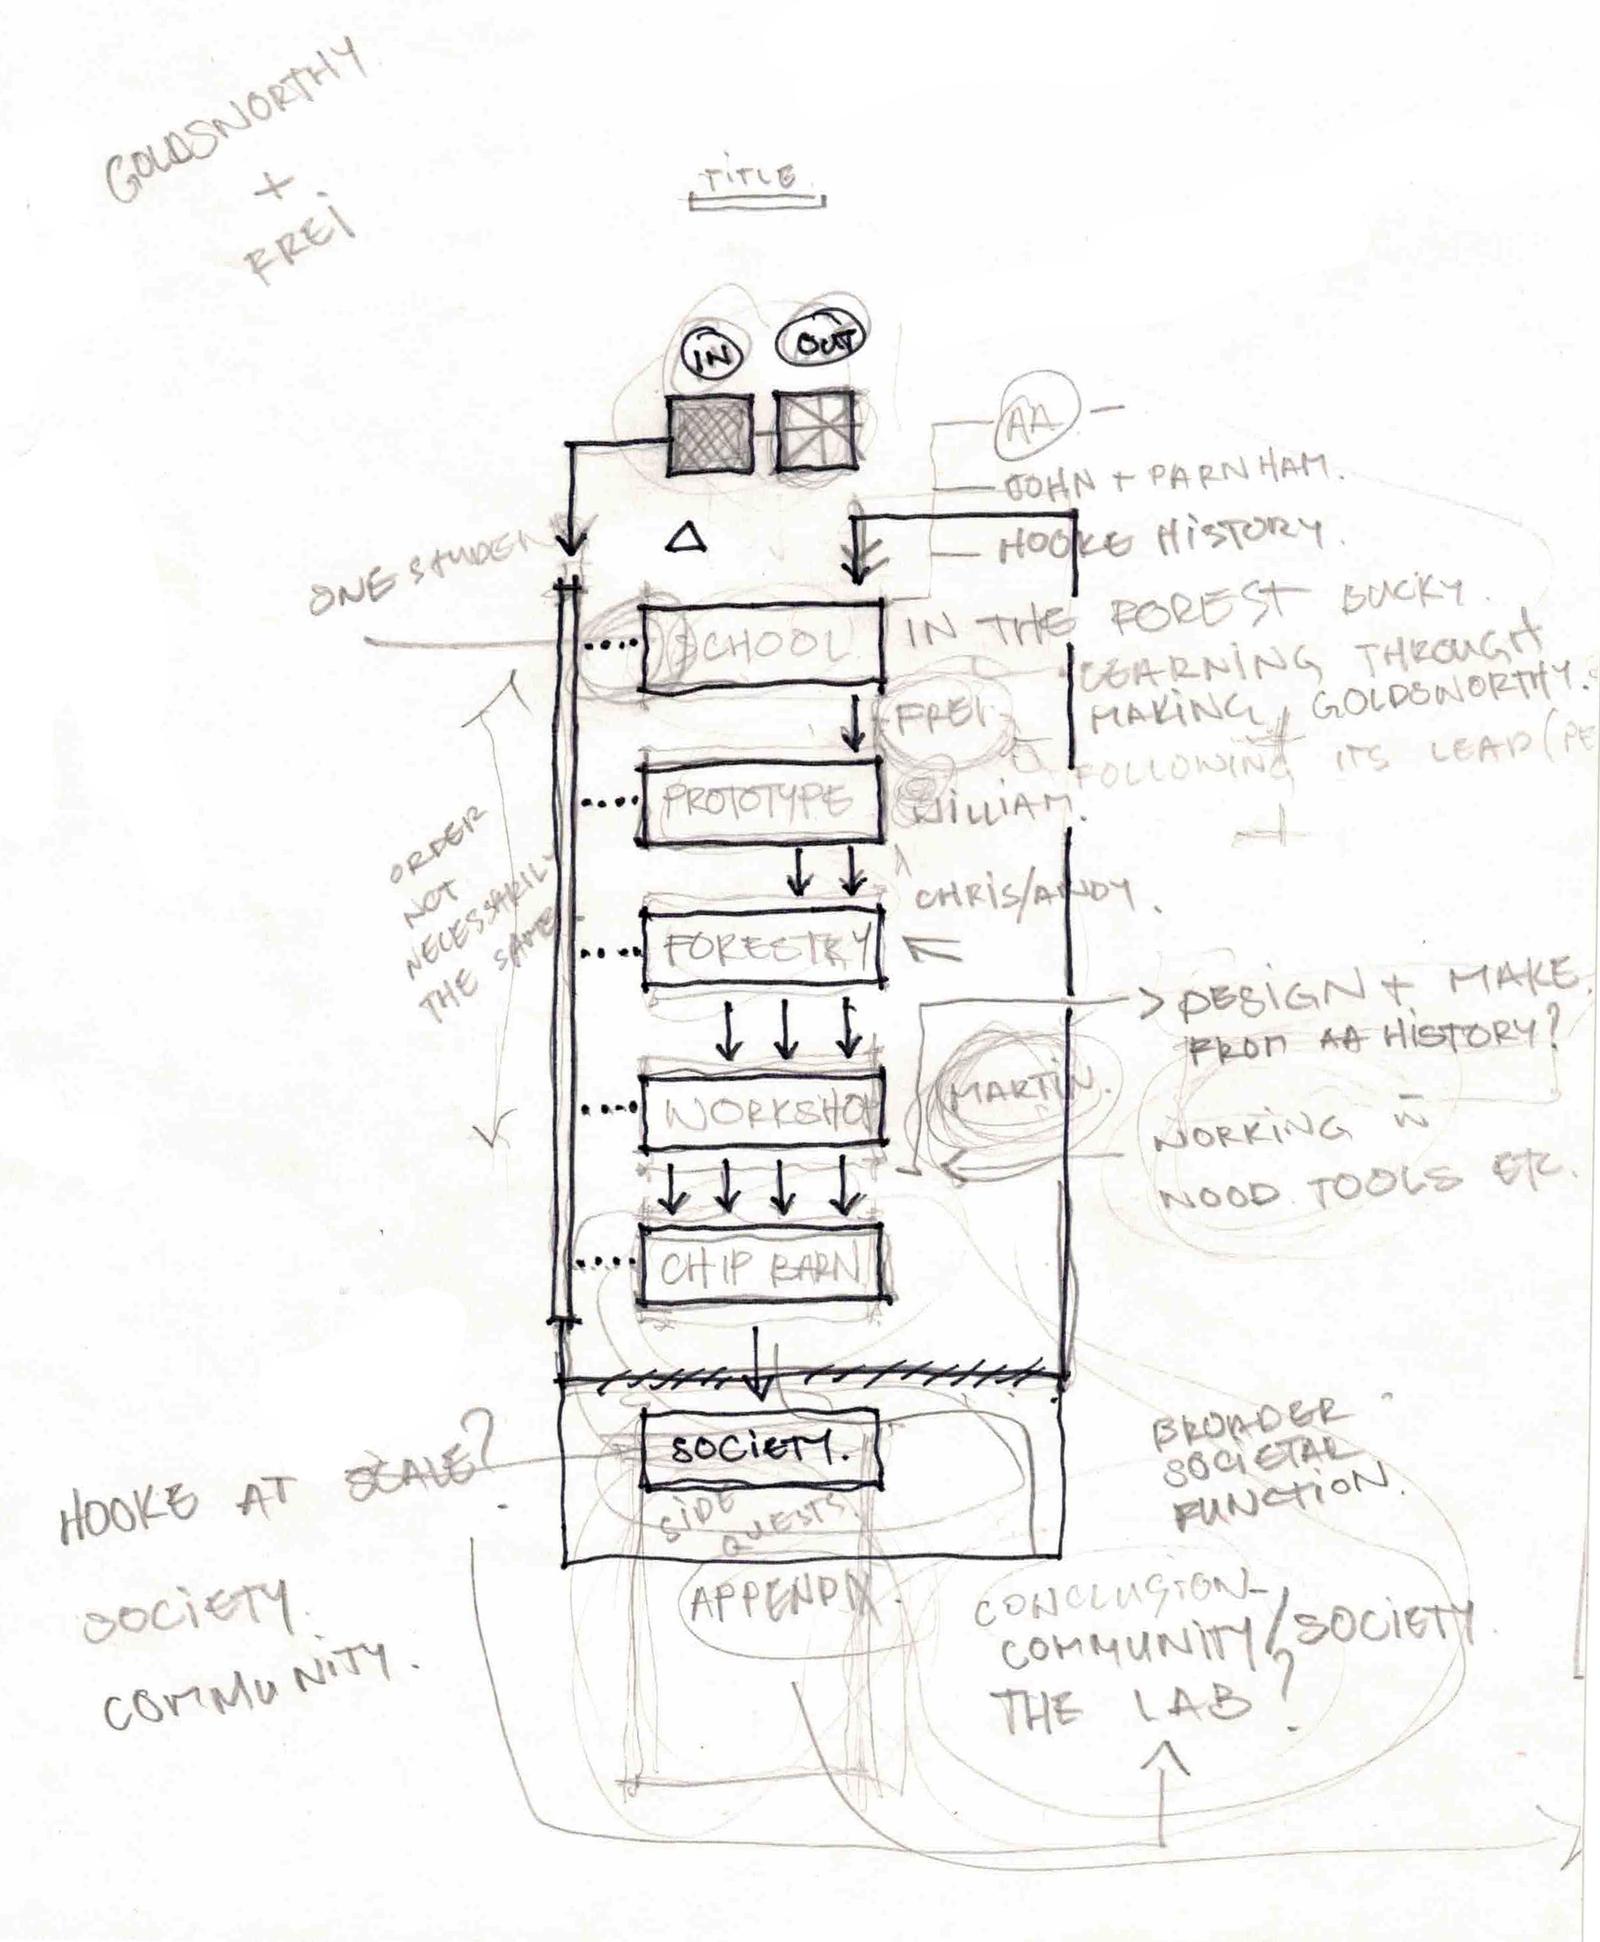 GOLDSWORTHY
+
FREI
TITLE
IN
OUT
AA
JOHN + PARNHAM.
HOOKE HISTORY.
ONE STUDENT
SCHOOL
IN THE FOREST BUCKY.
LEARNING THROUGH
MAKING, GOLDSWORTHY.
FOLLOWING ITS LEAD (PE
FREI
PROTOTYPE
WILLIAM.
ORDER
NOT
NECESSARILY
THE SAME.
CHRIS/ANDY.
FORESTRY
DESIGN + MAKE.
FROM AA HISTORY?
WORKSHOP
MARTIN.
WORKING W
WOOD TOOLS ETC.
CHIP BARN
SOCIETY.
SIDE
QUESTS.
APPENDIX.
HOOKE AT SCALE?
SOCIETY.
COMMUNITY.
BROADER
SOCIETAL
FUNCTION.
CONCLUSION-
COMMUNITY/SOCIETY
THE LAB?